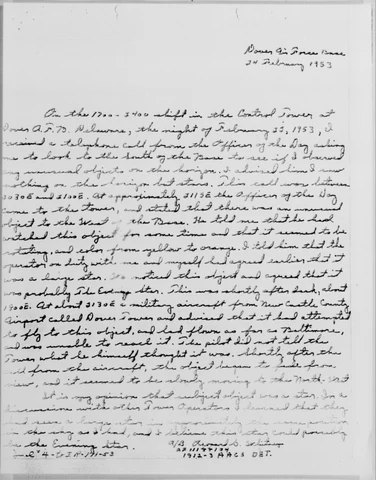 Dover Air Force Base
24 February 1953
On the 1700-2400 shift in the Control Tower at
Dover A.F.B. Delaware, the night of February 23, 1953, I
received a telephone call from the Officer of the Day asking
me to look to the South of the Base to see if I observed
any unusual objects on the horizon. I advised him I saw
nothing on the horizon but stars. This call was between
2030E and 2100E. At approximately 2115E the Officer of the Day
came to the tower, and stated that there was an unusual
object to the West of the Base. He told me that he had
watched this object for some time and that it seemed to be
rotating, and color from yellow to orange. I told him that the
operator on duty with me and myself had agreed earlier that it
was a large star. We noticed this object and agreed that it
was probably The Evening Star. This was shortly after dark, about
1900E. At about 2130E a military aircraft from New Castle County
Airport called Dover Tower and advised that it had attempted
to fly to this object, and had flown as far as Baltimore,
and was unable to reach it. The pilot did not tell the
Tower what he himself thought it was. Shortly after the
call from the aircraft, the object began to fade from
view, and it seemed to be slowly moving to the North West
It is my opinion that subject object was a star. In a
discussion with other Tower Operators I learned that they
had seen a large star in
in the way as I had, and I believe this star could possibly
be the Evening Star.
A/B Leonard D.
1912-3 AACS DET.